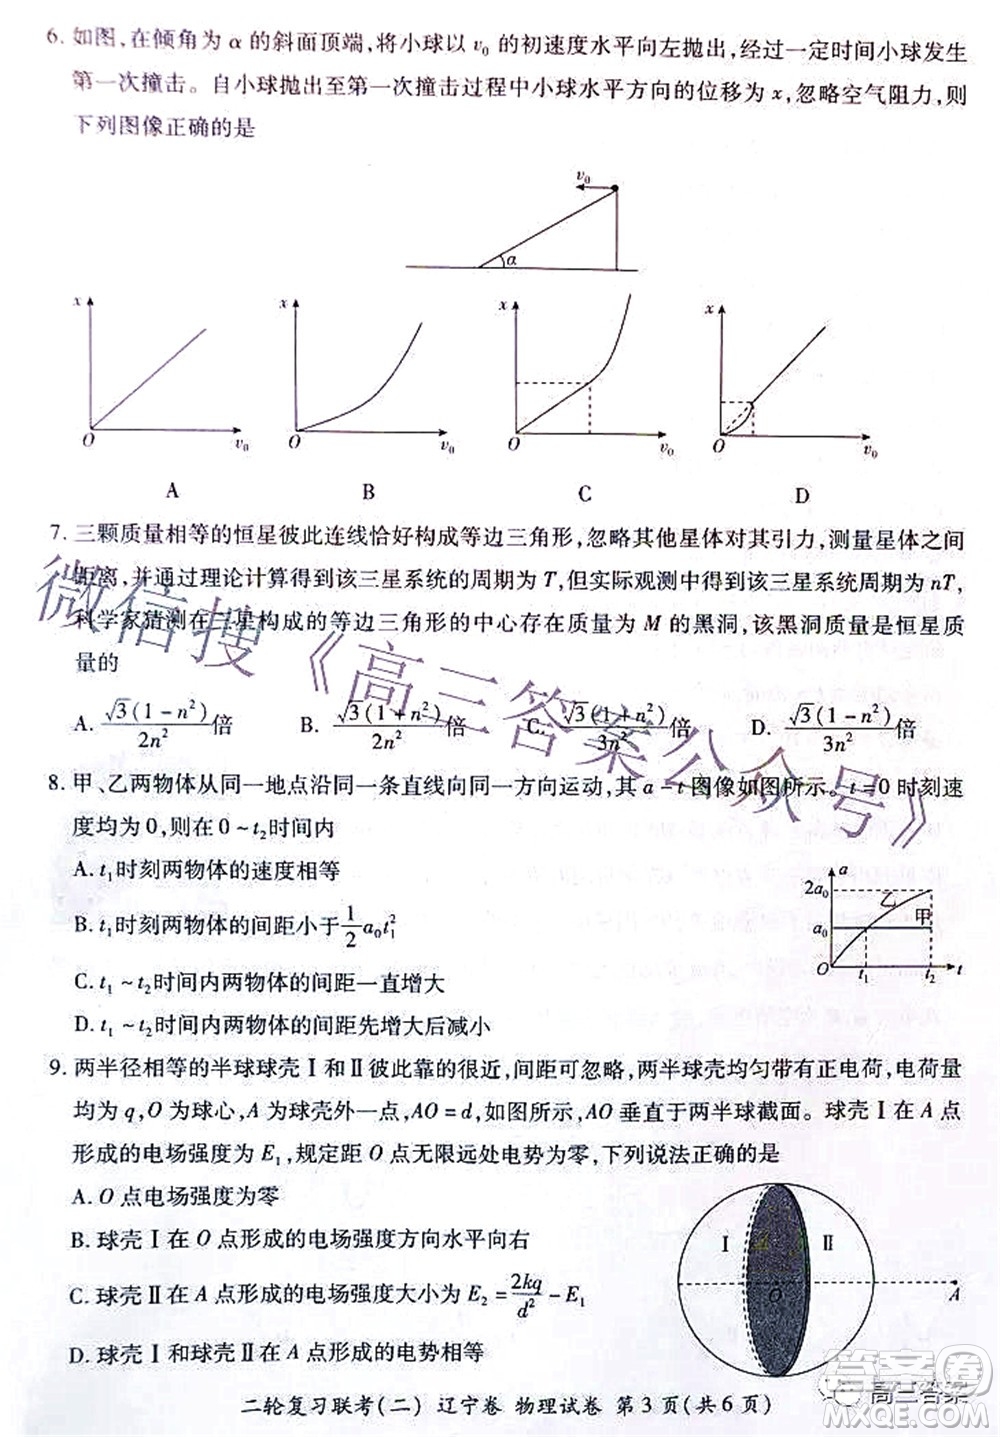 6. 如图,在倾角为 α 的斜面顶端,将小球以 v₀ 的初速度水平向左抛出,经过一定时间小球发生
第一次撞击。自小球抛出至第一次撞击过程中小球水平方向的位移为 x,忽略空气阻力,则
下列图像正确的是
v₀
α
x x x x
O v₀ O v₀ O v₀ O v₀
A B C D
7. 三颗质量相等的恒星彼此连线恰好构成等边三角形,忽略其他星体对其引力,测量星体之间
距离,并通过理论计算得到该三星系统的周期为 T,但实际观测中得到该三星系统周期为 nT,
科学家猜测在三星构成的等边三角形的中心存在质量为 M 的黑洞,该黑洞质量是恒星质
量的
A. √3(1-n²)/2n² 倍 B. √3(1+n²)/2n² 倍 C. √3(1+n²)/3n² 倍 D. √3(1-n²)/3n² 倍
8. 甲、乙两物体从同一地点沿同一条直线向同一方向运动,其 a-t 图像如图所示。t=0 时刻速
度均为 0,则在 0~t₂ 时间内
A. t₁ 时刻两物体的速度相等
B. t₁ 时刻两物体的间距小于 1/2 a₀t₁²
C. t₁~t₂ 时间内两物体的间距一直增大
D. t₁~t₂ 时间内两物体的间距先增大后减小
a
2a₀
乙
甲
a₀
O t₁ t₂ t
9. 两半径相等的半球球壳Ⅰ和Ⅱ彼此靠的很近,间距可忽略,两半球壳均匀带有正电荷,电荷量
均为 q,O 为球心,A 为球壳外一点,AO=d,如图所示,AO 垂直于两半球截面。球壳Ⅰ在 A 点
形成的电场强度为 E₁,规定距 O 点无限远处电势为零,下列说法正确的是
A. O 点电场强度为零
B. 球壳Ⅰ在 O 点形成的电场强度方向水平向右
C. 球壳Ⅱ在 A 点形成的电场强度大小为 E₂=2kq/d²-E₁
D. 球壳Ⅰ和球壳Ⅱ在 A 点形成的电势相等
Ⅰ Ⅱ
O A
二轮复习联考(二) 辽宁卷 物理试卷 第 3 页(共 6 页)
微信搜《高三答案公众号》
答案圈
高三答案